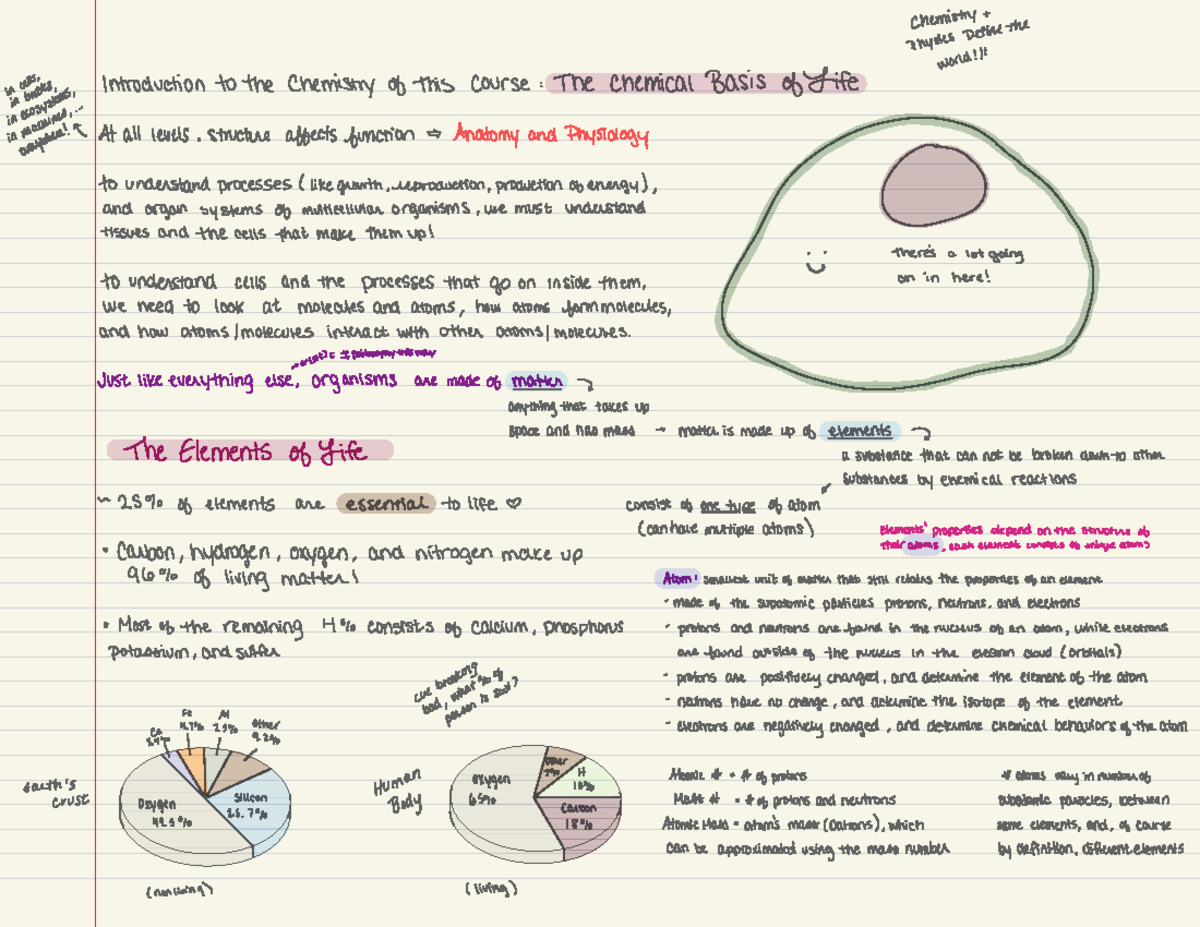 Chemistry +
Physics Define the
world!!!
Introduction to the Chemistry of This Course : The Chemical Basis of Life
in cells,
in bodies,
in ecosystems,
in machines,...
everywhere!
At all levels, structure affects function ⇒ Anatomy and Physiology
to understand processes (like growth, reproduction, production of energy),
and organ systems of multicellular organisms, we must understand
tissues and the cells that make them up!
there's a lot going
on in here!
to understand cells and the processes that go on inside them,
we need to look at molecules and atoms, how atoms form molecules,
and how atoms/molecules interact with other atoms/molecules.
Just like everything else, organisms are made of matter
anything that takes up
space and has mass → matter is made up of elements
a substance that can not be broken down to other
substances by chemical reactions
The Elements of Life
~ 25% of elements are essential to life ♡
consist of one type of atom
(can have multiple atoms)
Elements' properties depend on the structure of
their atoms, each element consists of unique atoms
• Carbon, hydrogen, oxygen, and nitrogen make up
96% of living matter!
• Most of the remaining 4% consists of calcium, phosphorus
potassium, and sulfer
Atom: smallest unit of matter that still retains the properties of an element
- made of the subatomic particles protons, neutrons, and electrons
- protons and neutrons are found in the nucleus of an atom, while electrons
are found outside of the nucleus in the electron cloud (orbitals)
- protons are positively charged, and determine the element of the atom
- neutrons have no charge, and determine the isotope of the element
- electrons are negatively charged, and determine chemical behaviors of the atom
cue breaking
bad, what % of
person is soul?
Earth's
crust
Ca
Fe
4.7%
Al
7.9%
Other
9.2%
Oxygen
49.5%
Silicon
25.7%
(nonliving)
Human
Body
Oxygen
65%
Other
7%
H
10%
Carbon
18%
(living)
Atomic # = # of protons
Mass # = # of protons and neutrons
Atomic Mass = atom's mass (Daltons), which
can be approximated using the mass number
* atoms vary in number of
subatomic particles, between
same elements, and, of course
by definition, different elements